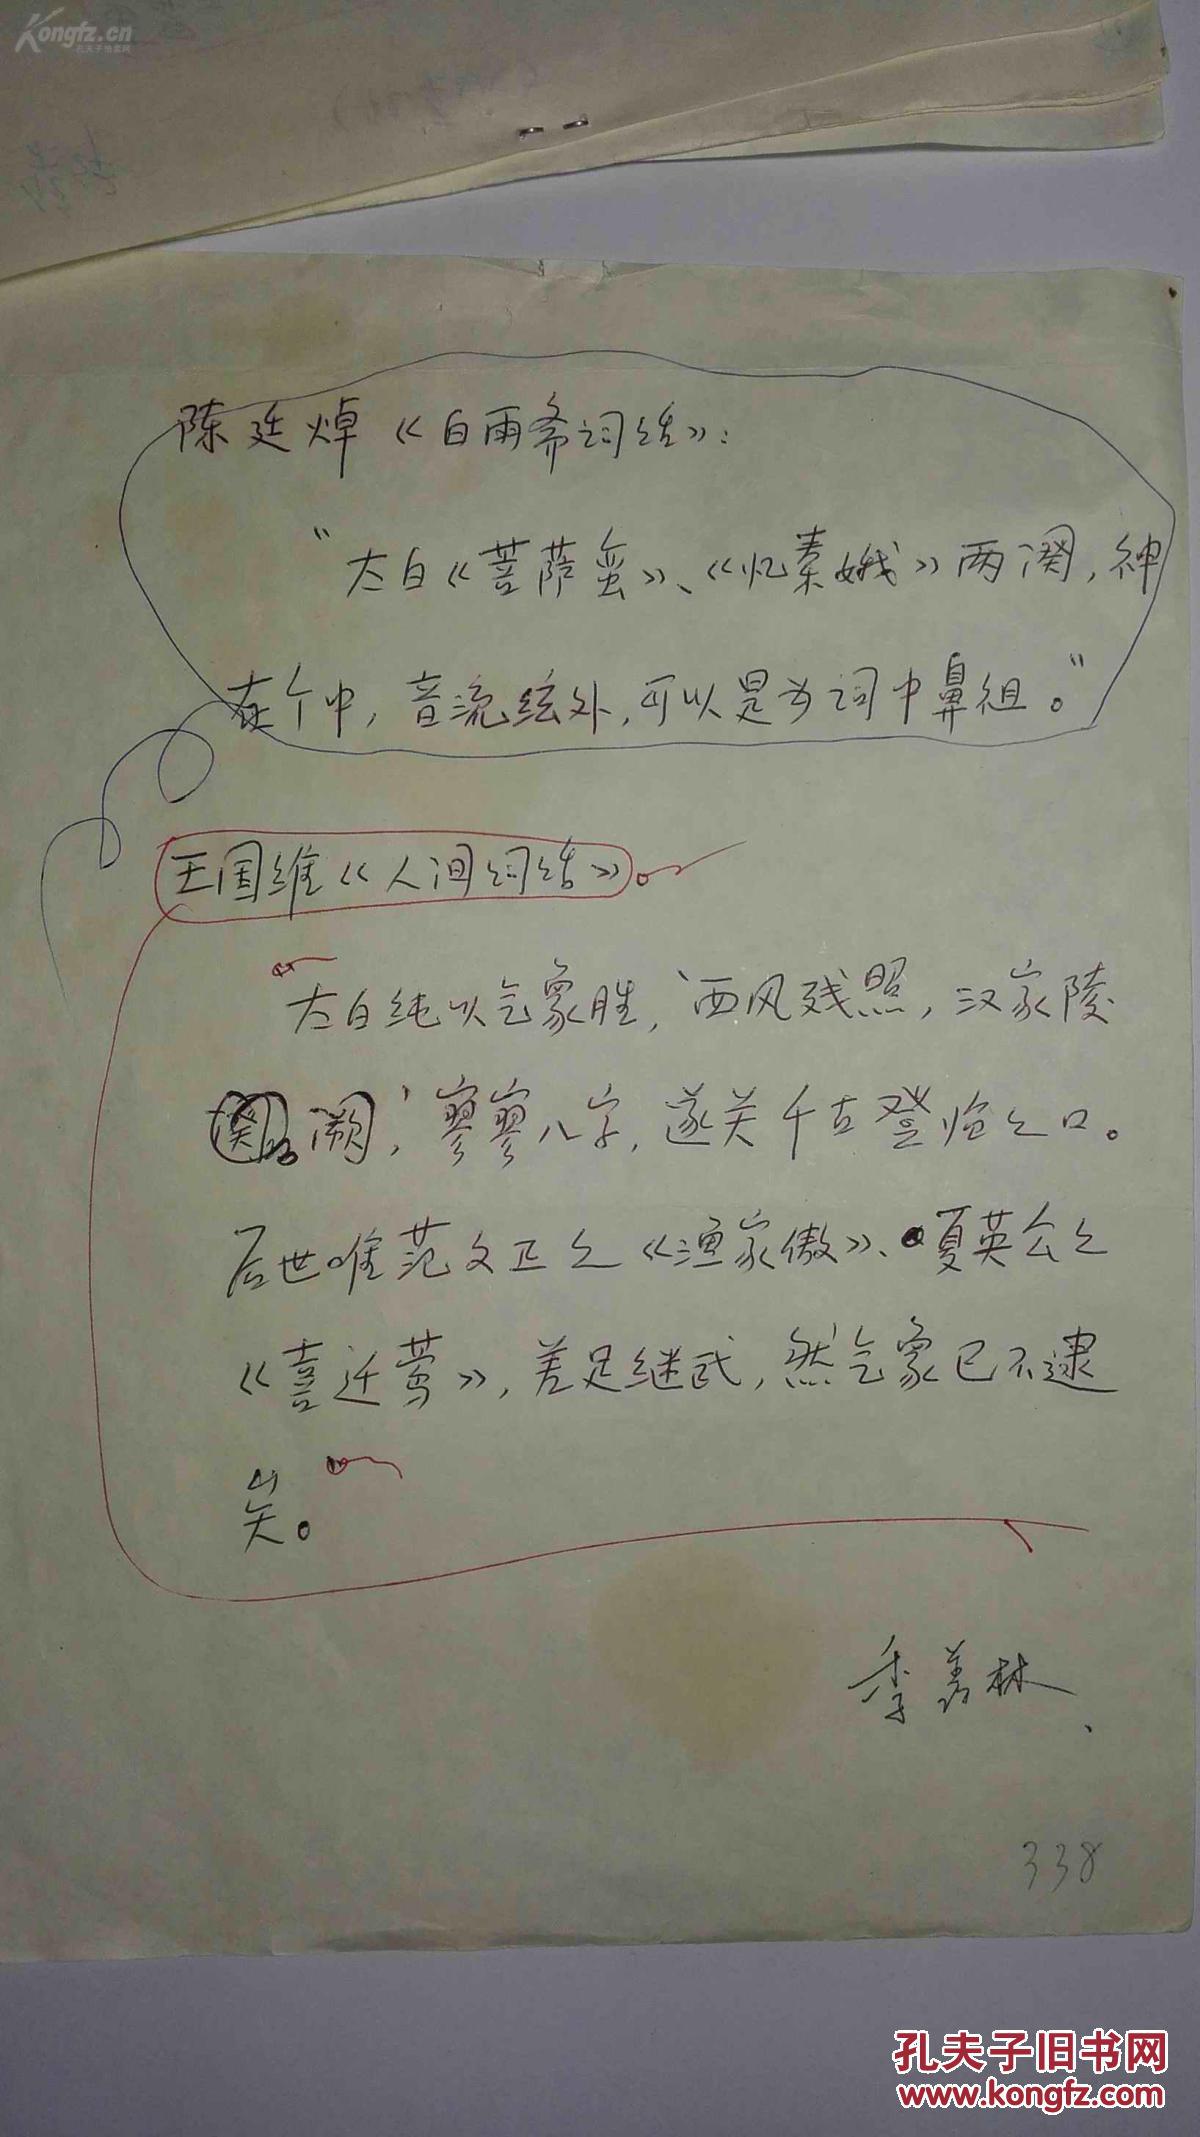 Kongfz.cn
孔夫子旧书网
陈廷焯《白雨斋词话》：
“太白《菩萨蛮》、《忆秦娥》两阕，神
在个中，音流弦外，可以是为词中鼻祖。”
王国维《人间词话》
太白纯以气象胜，‘西风残照，汉家陵
阙’，寥寥八字，遂关千古登临之口。
后世唯范文正之《渔家傲》、夏英公之
《喜迁莺》，差足继武，然气象已不逮
矣。
季羡林
338
孔夫子旧书网
www.kongfz.com